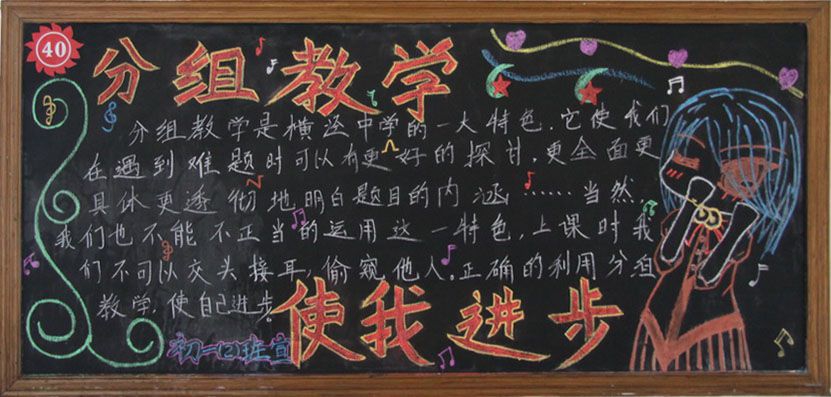 40
分组教学
分组教学是横泾中学的一大特色，它使我们
在遇到难题时可以有更好的探讨，更全面更
具体更透彻地明白题目的内涵……当然，
我们也不能不正当的运用这一特色，上课时我
们不可以交头接耳，偷窥他人。正确的利用分组
教学，使自己进步。
使我进步
初一四班宣